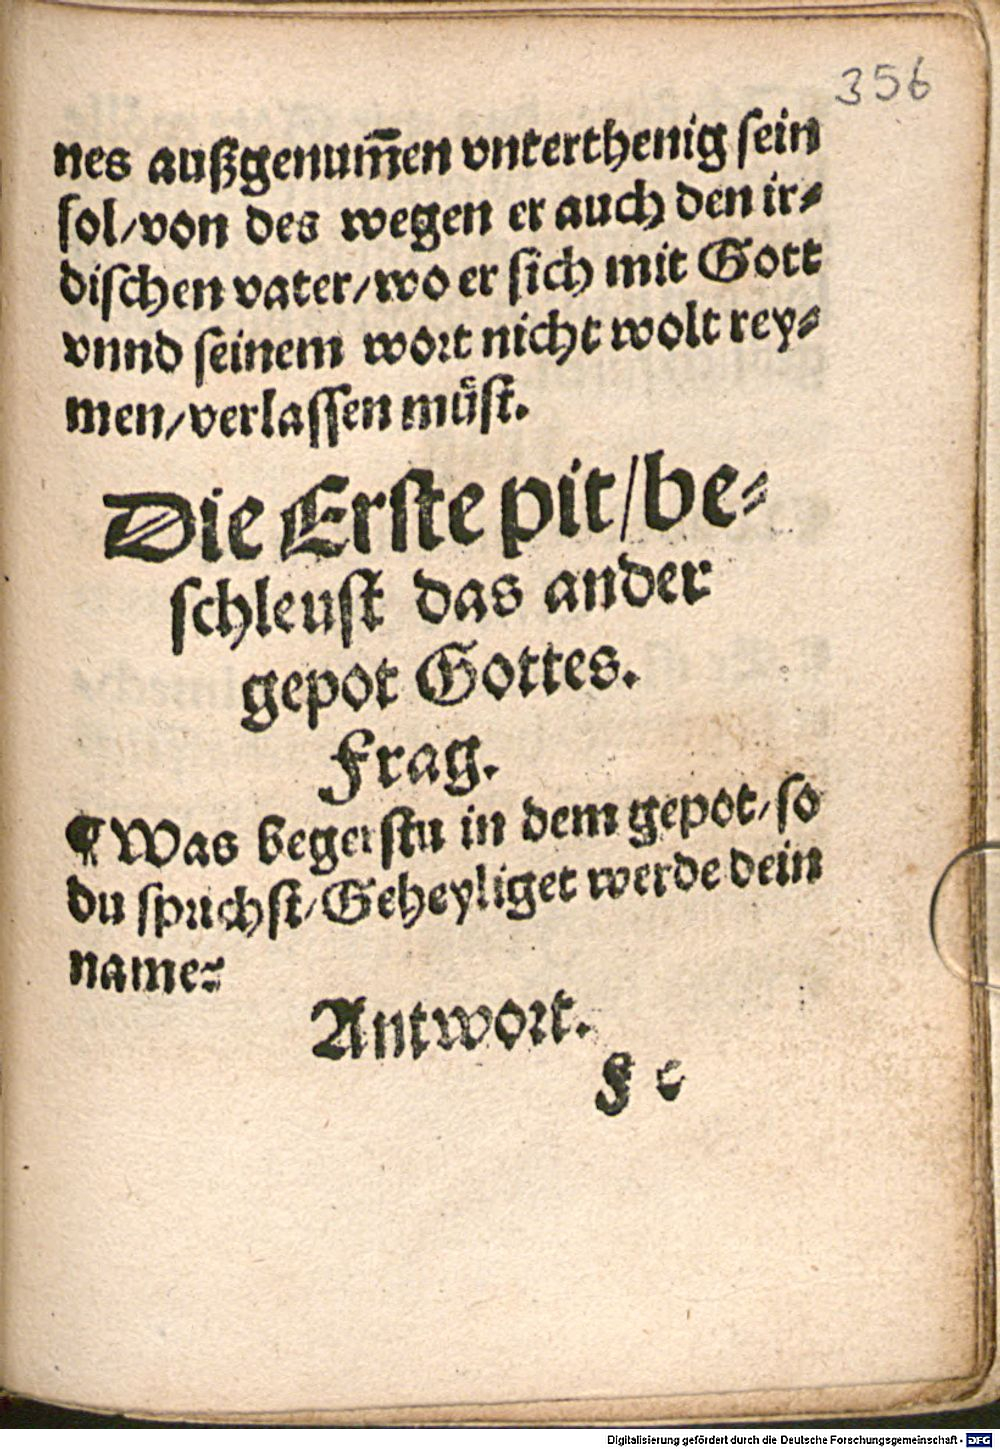 356
nes außgenum̄en vnterthenig sein
sol/von des wegen er auch den ir⸗
dischen vater/wo er sich mit Gott
vnnd seinem wort nicht wolt rey⸗
men/verlassen muͤst.
Die Erste pit/be⸗
schleust das ander
gepot Gottes.
Frag.
¶ Was begerstu in dem gepot/so
du sprichst/Geheyliget werde dein
name?
Antwort.
F
Digitalisierung gefördert durch die Deutsche Forschungsgemeinschaft - DFG